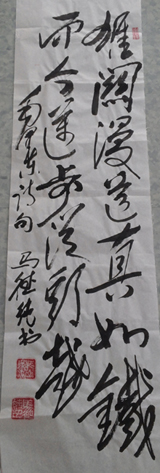 雄關漫道真如鐵
而今邁步從頭越
毛澤東詩句
馬